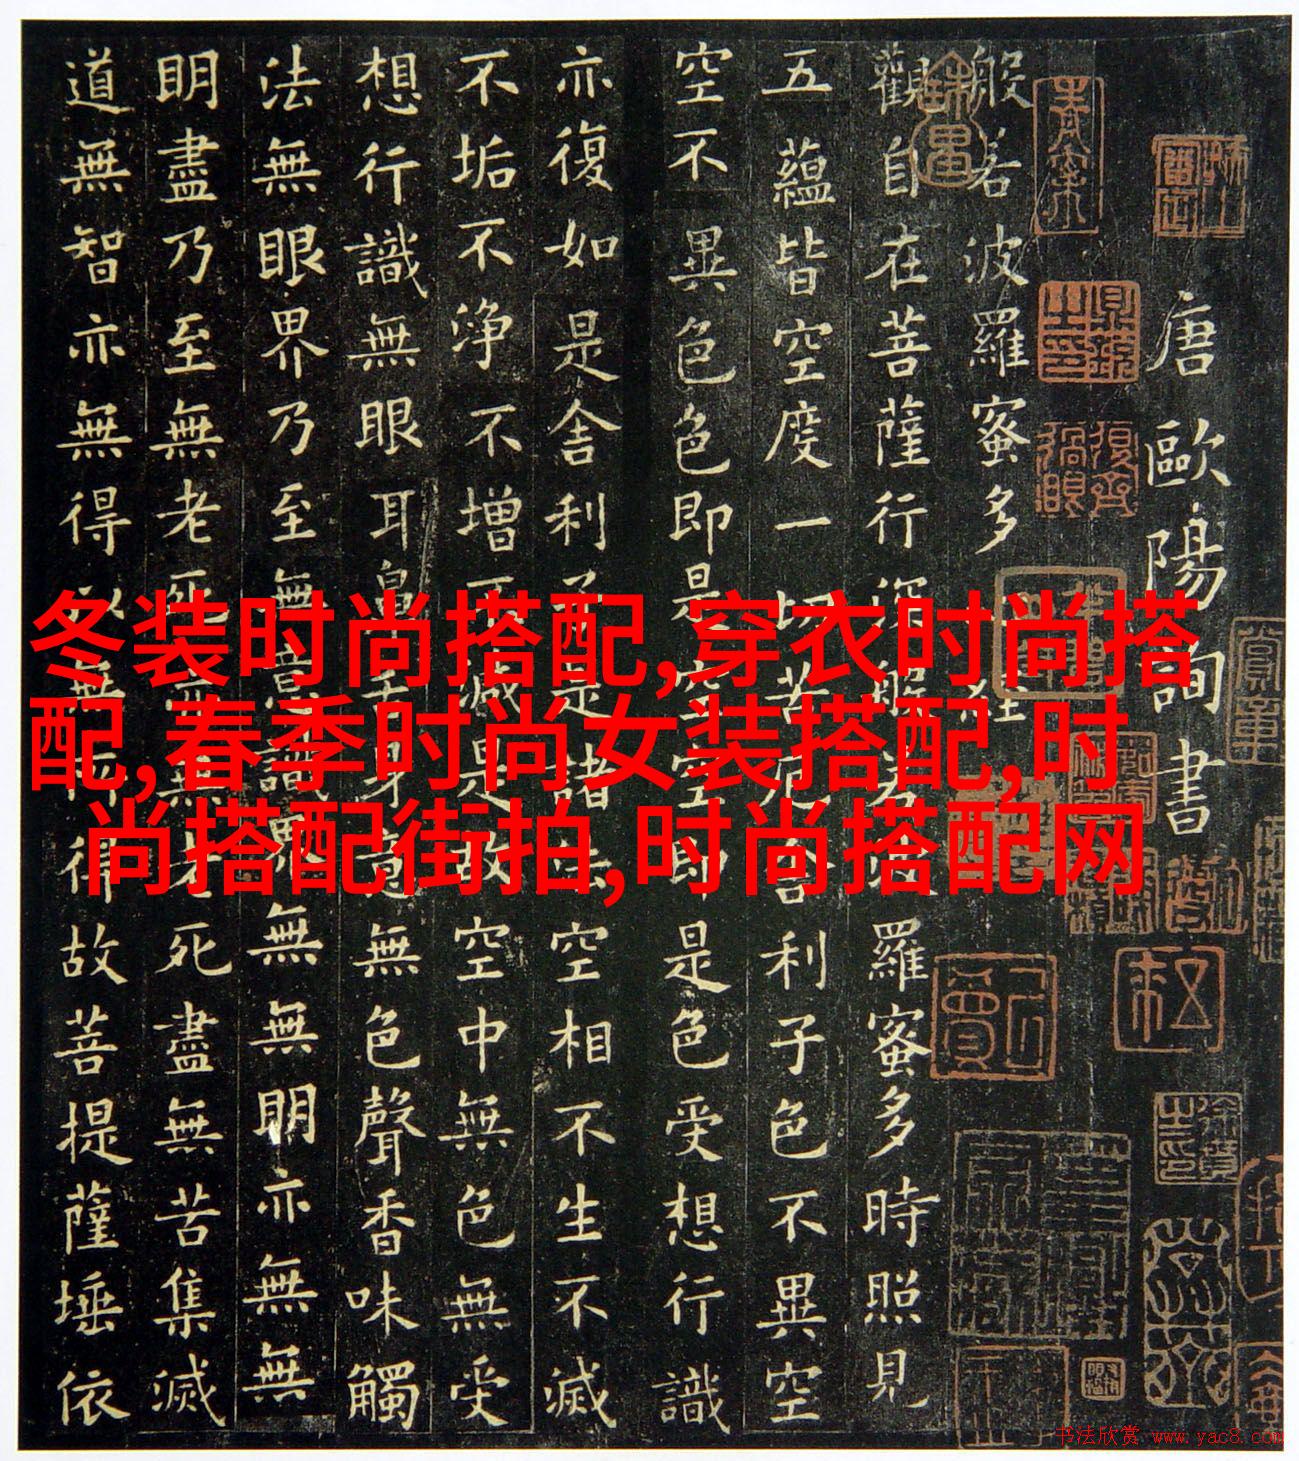 冬装时尚搭配,穿衣时尚搭
配,春季时尚女装搭配,时
尚搭配街拍,时尚搭配网
唐歐陽詢書
般若波羅蜜多經
觀自在菩薩行深般若波羅蜜多時照見
五蘊皆空度一切苦厄舍利子色不異空
空不異色色即是空空即是色受想行識
亦復如是舍利子是諸法空相不生不滅
不垢不淨不增不減是故空中無色無受
想行識無眼耳鼻舌身意無色聲香味觸
法無眼界乃至無意識界無無明亦無無
明盡乃至無老死亦無老死盡無苦集滅
道無智亦無得以無所得故菩提薩埵依
书法欣赏 www.yac8.com